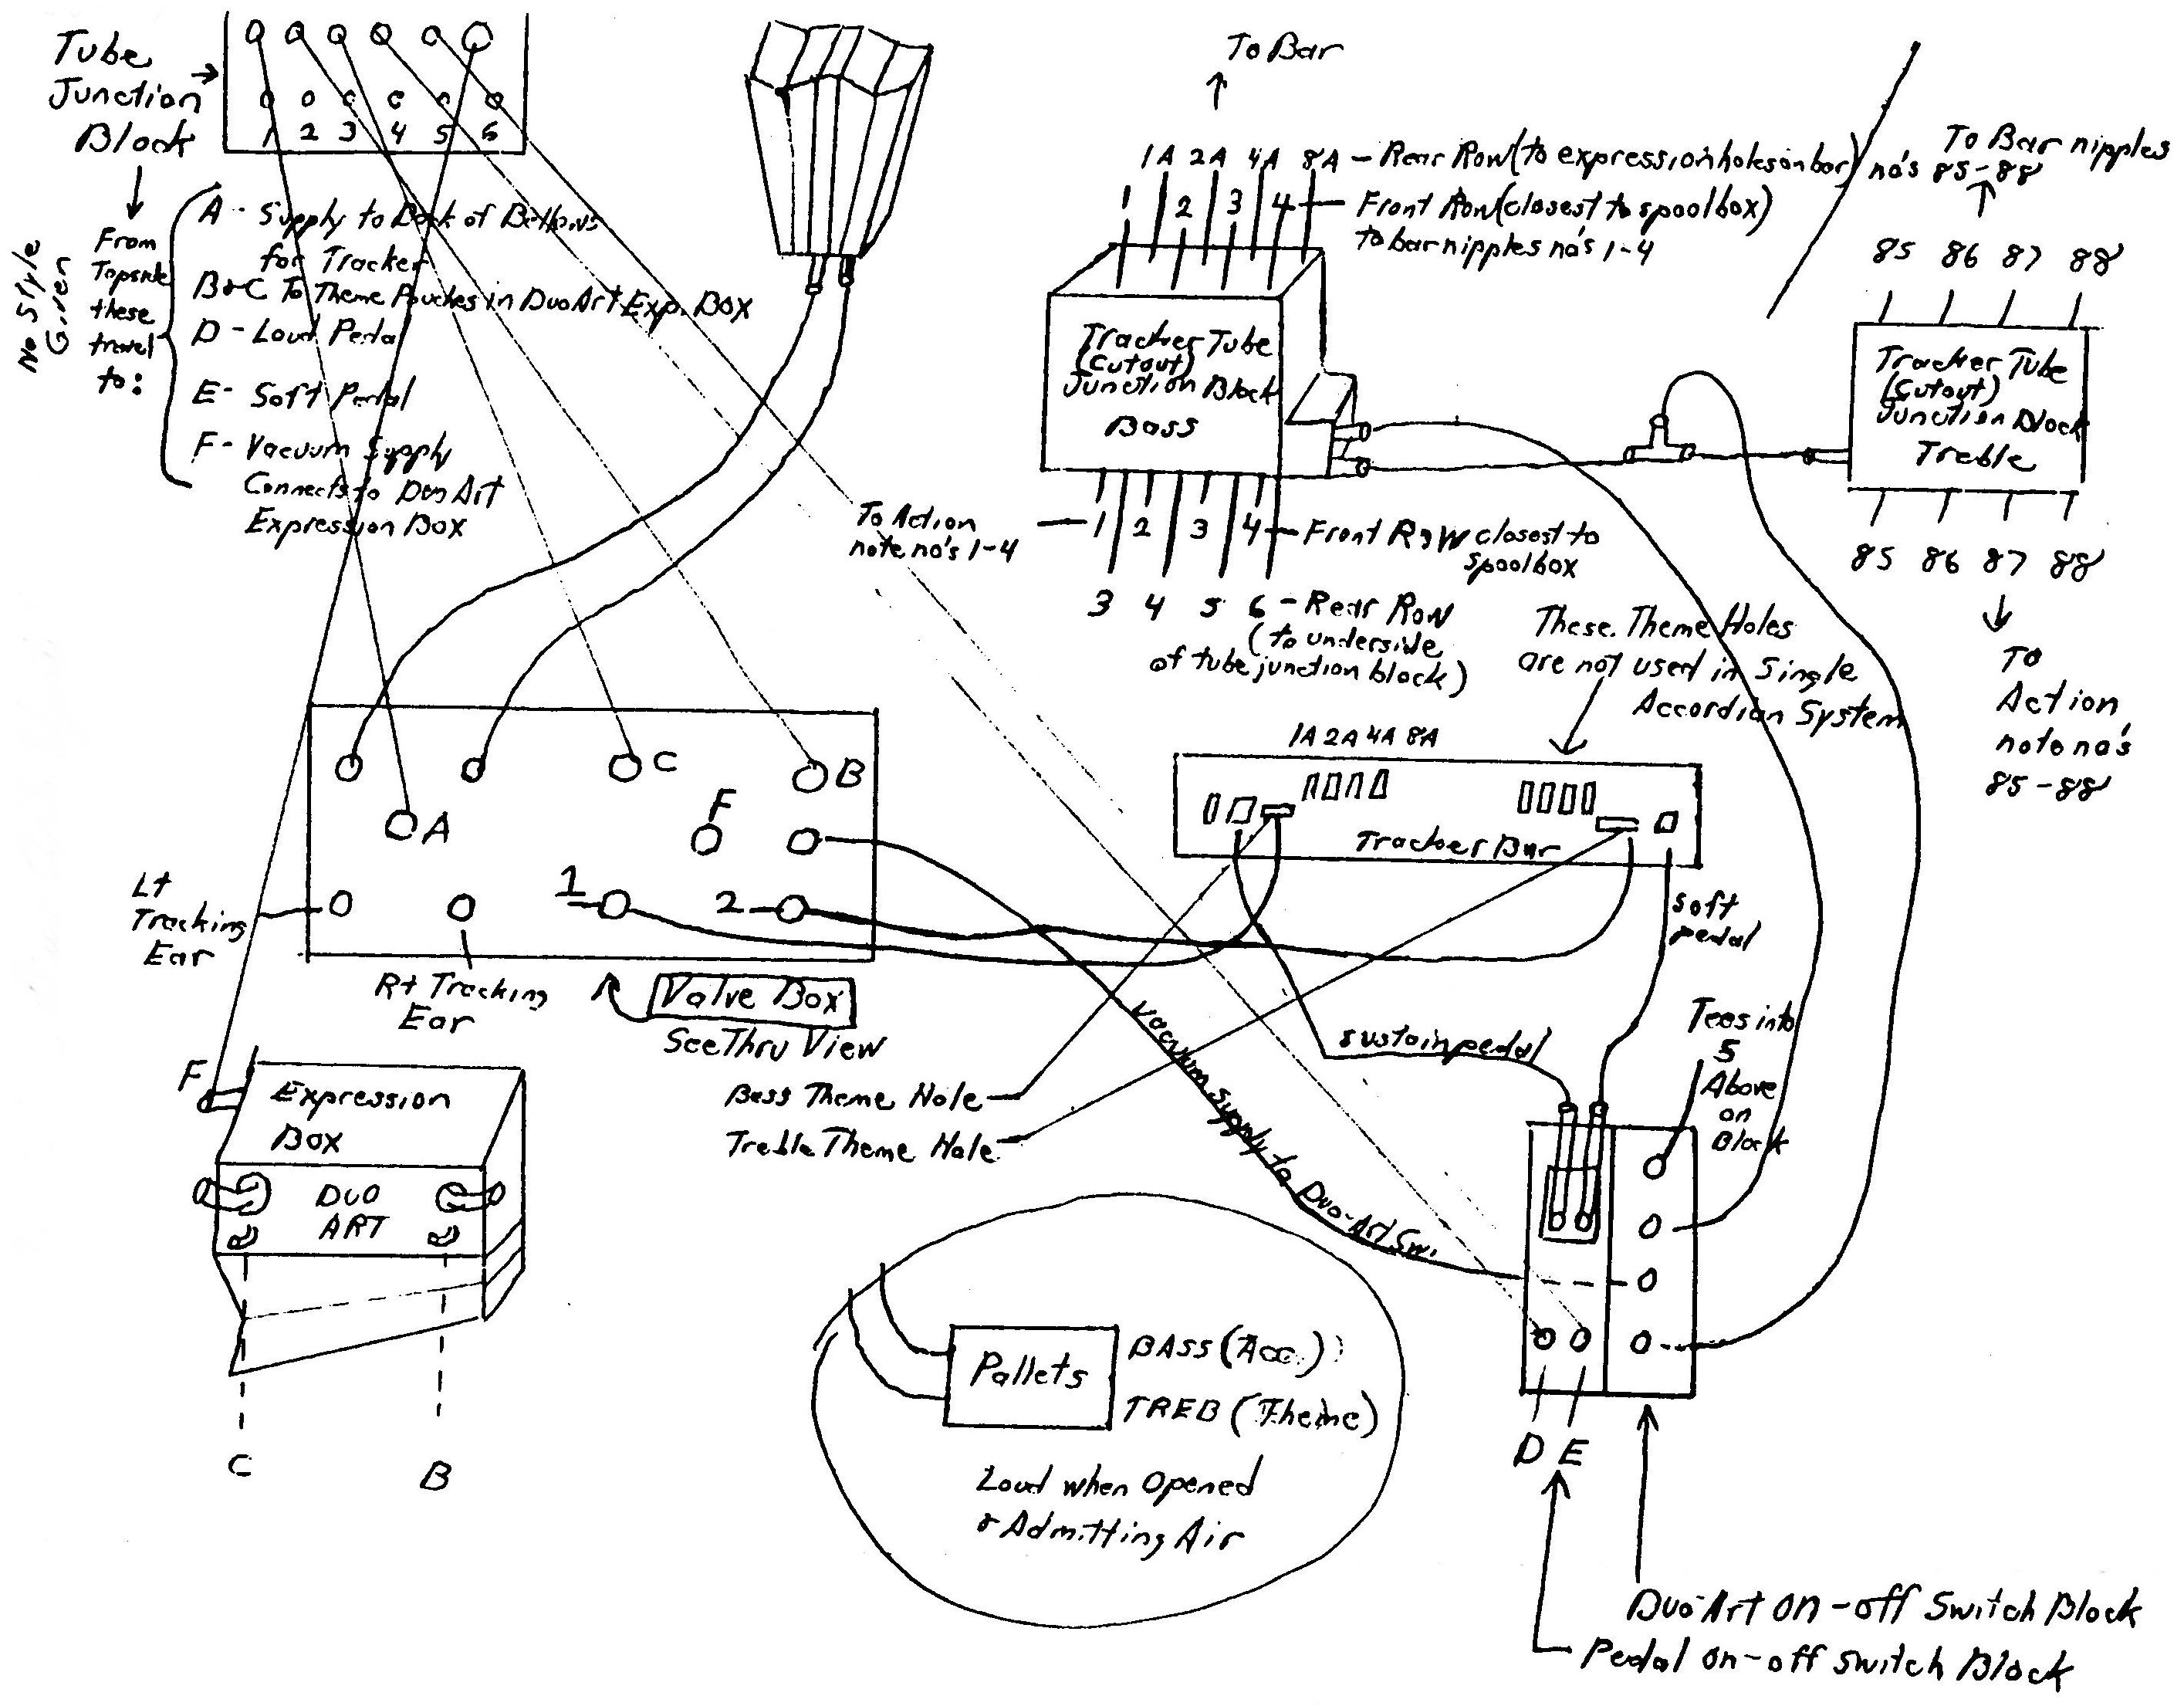 Tube
Junction
Block
1 2 3 4 5 6
No Style
Given
From
Topside
these
travel
to:
A - Supply to Back of Bellows
for Tracker
B&C To Theme Pouches in Duo Art Exp. Box
D - Loud Pedal
E - Soft Pedal
F - Vacuum Supply
Connects to Duo Art
Expression Box
To Bar
1A 2A 4A 8A - Rear Row (to expression holes on bar)
1 2 3 4 - Front Row (closest to spoolbox)
to bar nipples no's 1-4
Tracker Tube
(Cutout)
Junction Block
Bass
To Action
note no's 1-4
1 2 3 4 - Front Row closest to
spoolbox
3 4 5 6 - Rear Row
(to underside
of tube junction block)
To Bar nipples
no's 85-88
85 86 87 88
Tracker Tube
(Cutout)
Junction Block
Treble
85 86 87 88
To
Action
note no's
85-88
These Theme Holes
are not used in Single
Accordian System
1A 2A 4A 8A
Tracker Bar
C
B
A
F
1
2
Lt
Tracking
Ear
Rt Tracking
Ear
Valve Box
See Thru View
soft
pedal
sustain pedal
Bass Theme Hole
Treble Theme Hole
Vacuum supply to Duo-Art Sw.
Tees into
5
Above
on
Block
F
Expression
Box
DUO
ART
C
B
Pallets
BASS (Acc.)
TREB (Theme)
Loud when Opened
& Admitting Air
D E
Duo-Art on-off Switch Block
Pedal on-off switch Block